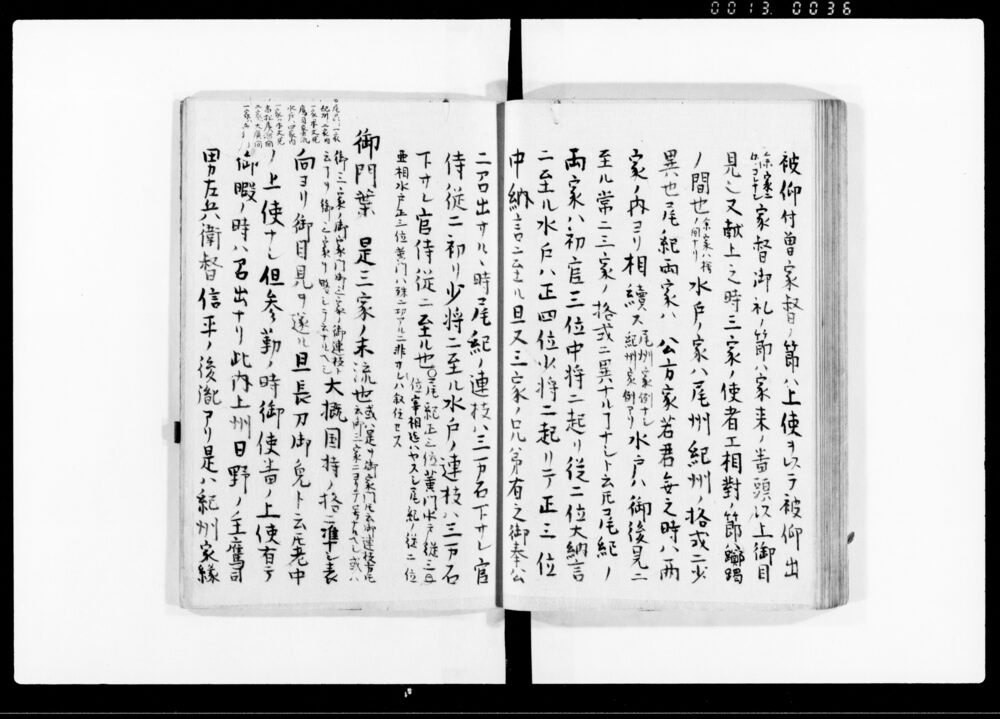 0013.0036
被仰付曽家督ノ節ハ上使ヲ以テ被仰出
家督御礼ノ節ハ家来ノ番頭以上御目
見シ又献上之時三家ノ使者エ相對ノ節躑躅
ノ間也 水戸ノ家ハ尾州紀州ノ格式ニ少
異也尾紀両家ハ 公方家若君無之時ハ両
家ノ内ヨリ相續ス 尾州家例ナシ 紀州家例アリ 水戸ハ御後見ニ
至ル常ニ三家ノ格式ニ異ナル了ナシト云𪜈尾紀ノ
両家ハ初官三位中将ニ起リ従二位大納言
ニ至ル水戸ハ正四位少将ニ起リテ正三位
中納言ニ至ル且又三家ノ兄弟有之御奉公
ニ召出サルヽ時尾紀ノ連枝ハ三万石下サレ官
侍従ニ初リ少将ニ至ル水戸ノ連枝ハ三万石
下サレ官侍従ニ至ル也 尾紀正三位黄門水戸従三
位宰相迄ハヤスシ尾紀ノ従二位
亜相水戸正三位黄門ハ殊ニ功アルニ非サレハ叙任セス
御門葉 是三家ノ末流也 或ハ是ヲ御家門ト云御連枝
御三家ノ御家門御三家ノ御連枝ト
大概国持ノ格ニ準シ表
向ヨリ御目見ヲ遂ル且長刀御免ト云𪜈老中
ノ上使ナシ但参勤ノ時御使番ノ上使有テ
御暇ノ時ハ召出ナリ此内上州日野ノ主鷹司
男左兵衛督信平ノ後胤アリ是ハ紀州家縁